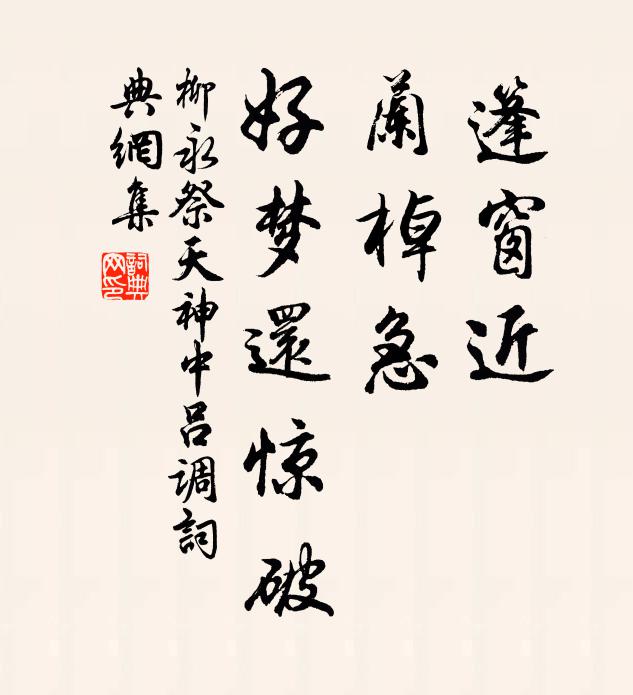 蓬窗近
蘭棹急
好梦還惊破
柳永祭天神中呂调詞
典網集
詞典
网印